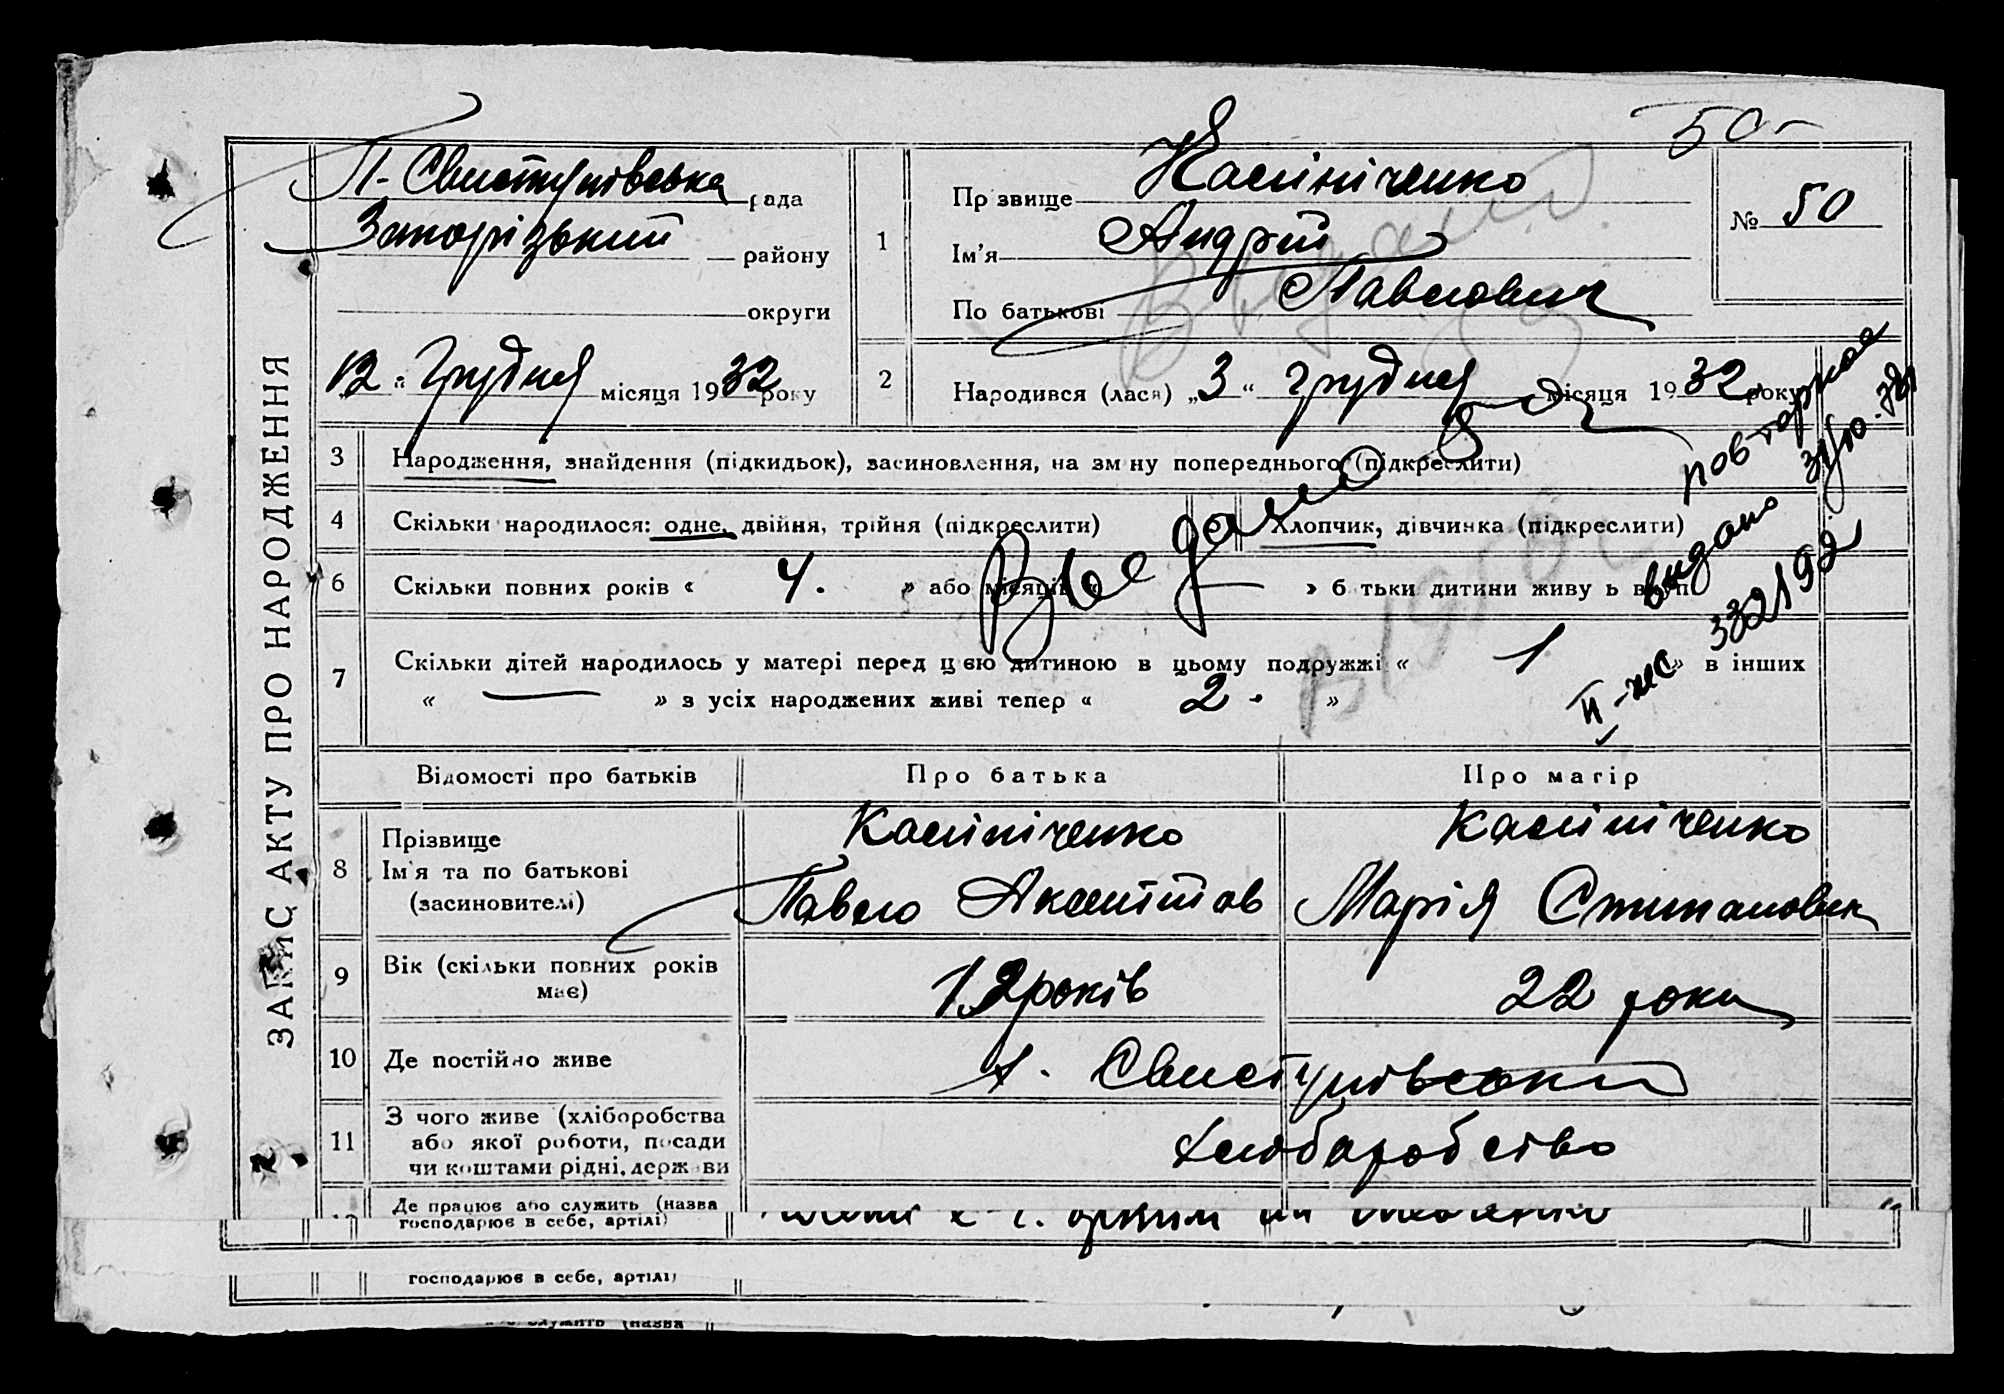 50
П-Свистунівська рада
Запорізький району
округи
12 " грудня місяця 1932 року
ЗАПИС АКТУ ПРО НАРОДЖЕННЯ
1
Прізвище Калініченко
Ім'я Андрій
По батькові Павлович
№ 50
2
Народився (лася) „3“ грудня місяця 1932 року
3 Народження, знайдення (підкидьок), засиновлення, на зміну попереднього (підкреслити)
4 Скільки народилося: одне, двійня, трійня (підкреслити)
Хлопчик, дівчинка (підкреслити)
6 Скільки повних років « 4. » або місяців — » батьки дитини живуть вкупі
7 Скільки дітей народилось у матері перед цією дитиною в цьому подружжі « 1 » в інших
« — » з усіх народжених живі тепер « 2. »
Выдано
повторное
выдано
II-жс 332192
Відомості про батьків
Про батька
Про матір
8 Прізвище
Ім'я та по батькові
(засновителі)
Калініченко
Павло
Калініченко
Марія
9 Вік (скільки повних років
має)
років
22 роки
10 Де постійно живе
Свистунівський
11 З чого живе (хліборобства
або якої роботи, посади
чи коштами рідні, держави
хліборобство
Де працює або служить (назва
господарює в себе, артілі)
господарює в себе, артілі)
служить (назва